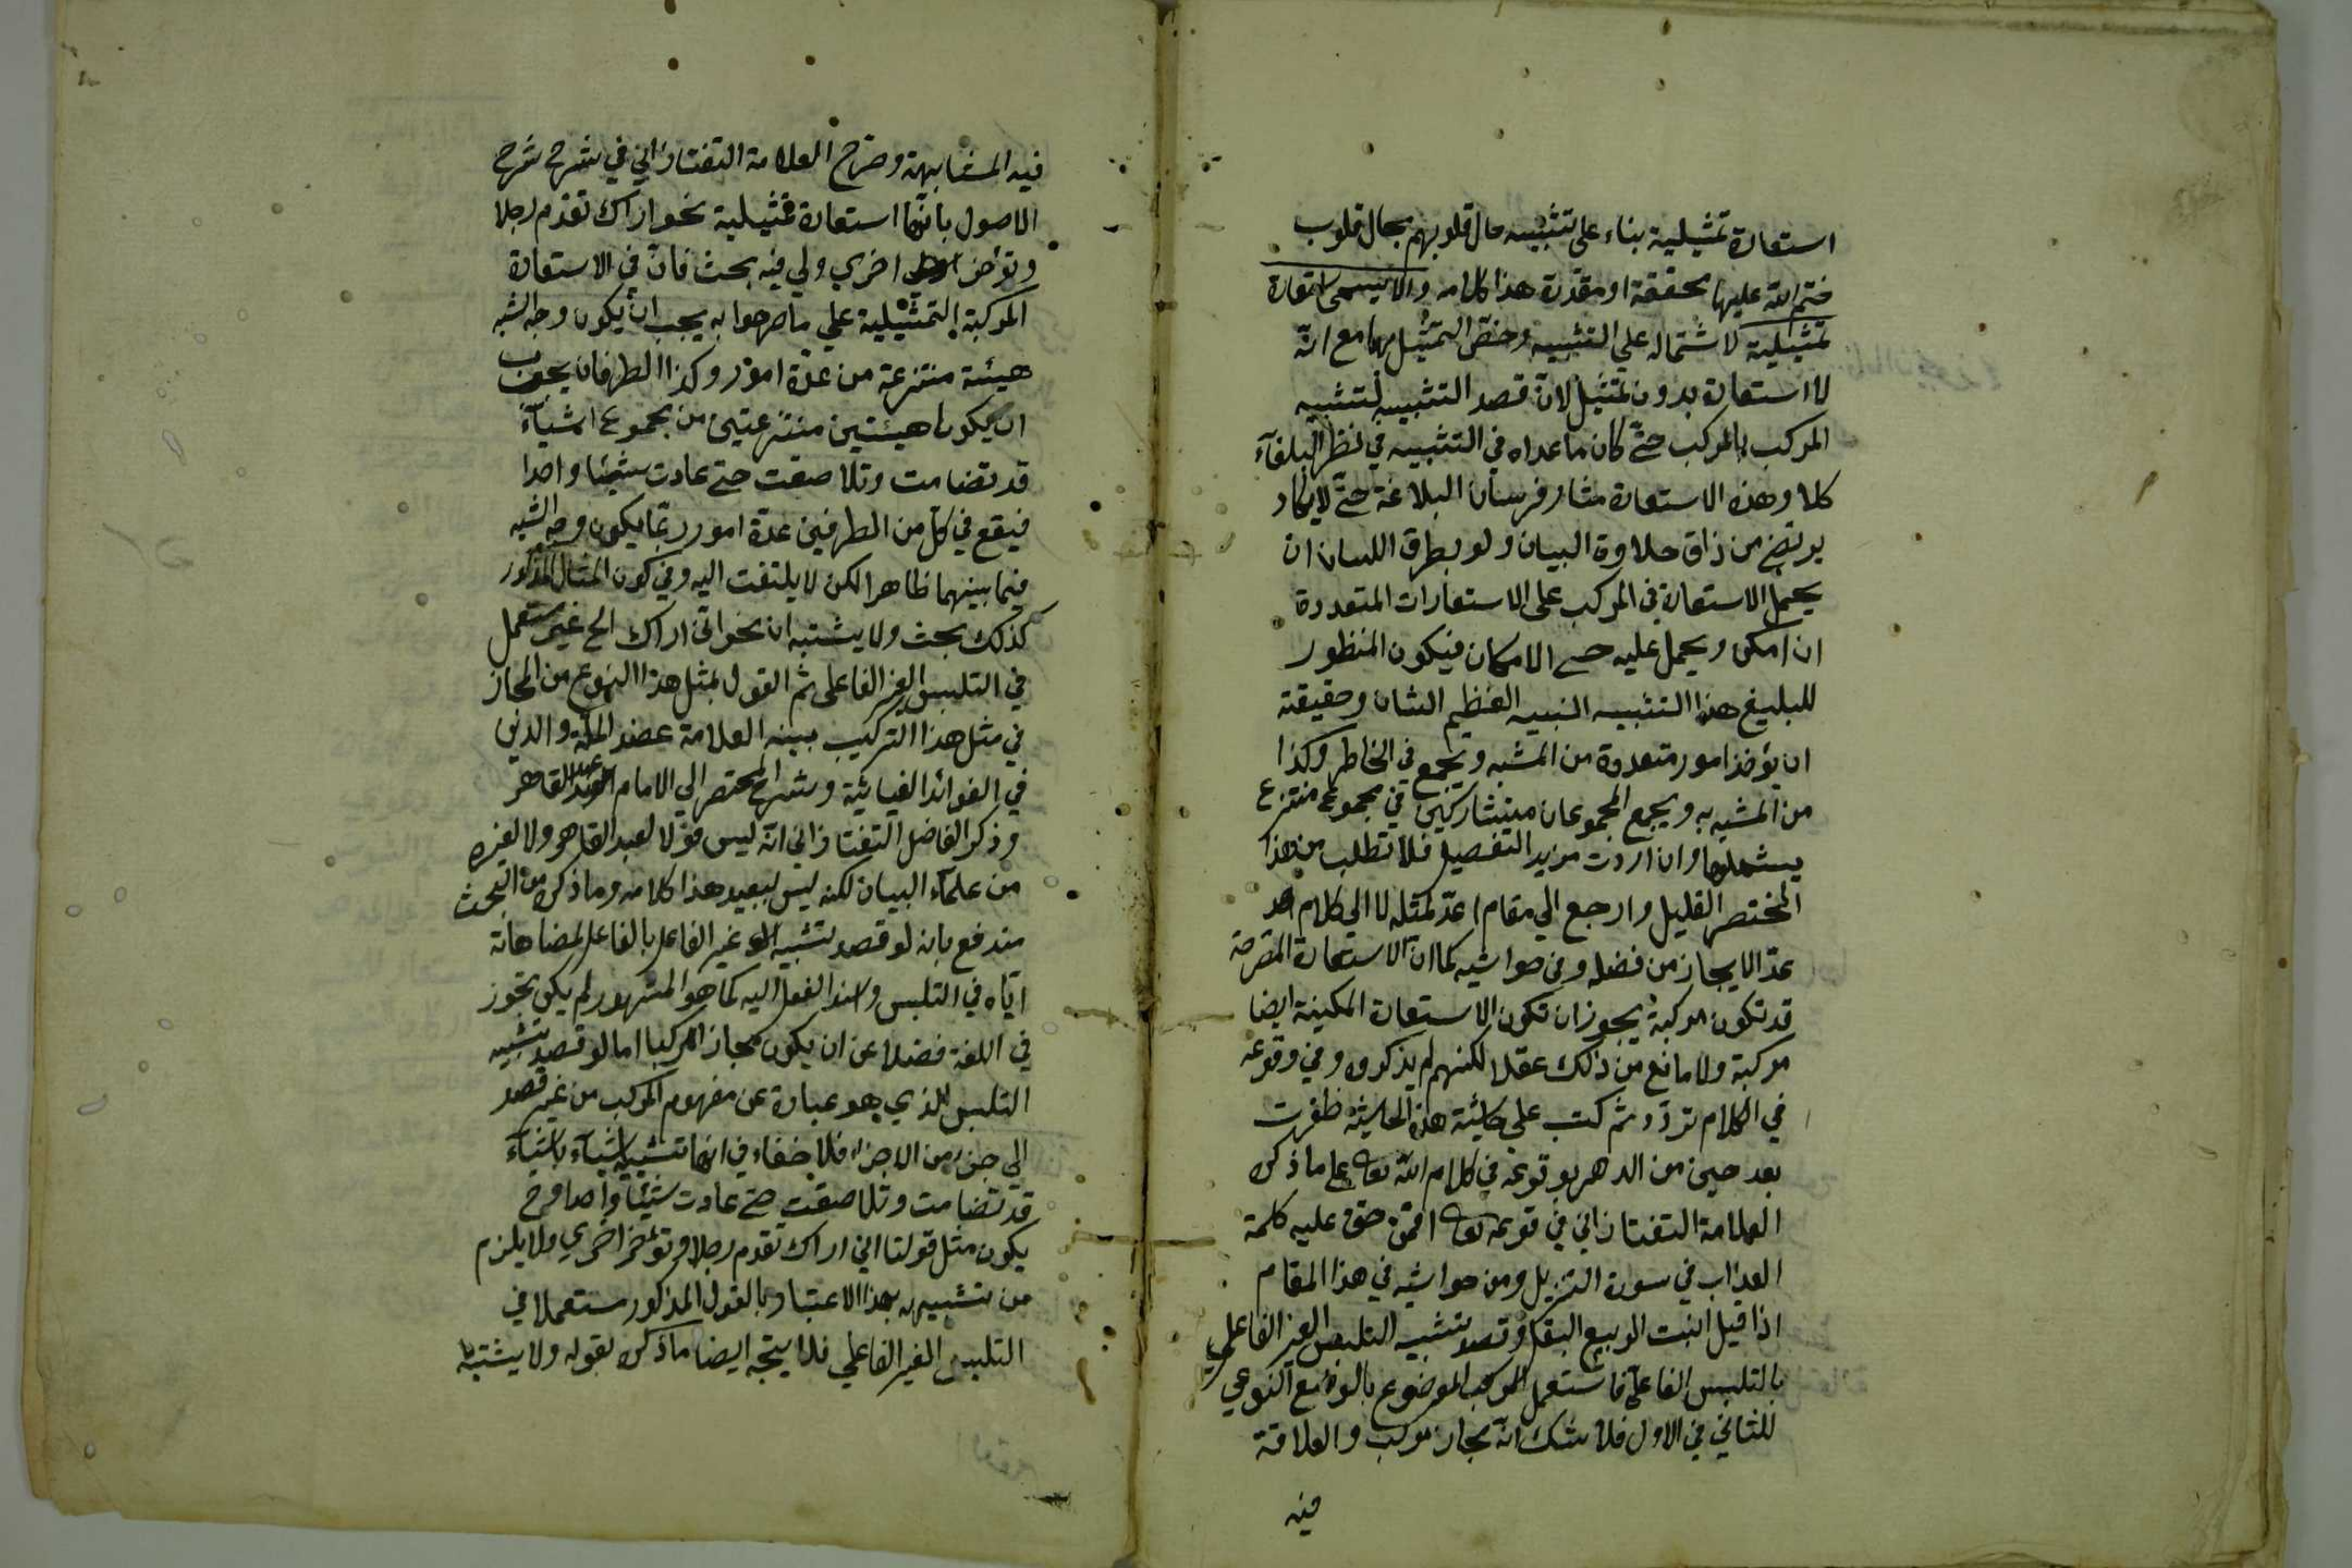 استعارة تمثيلية بناء على تشبيه حال قلوبهم بحال قلوب
ختم الله عليها محققة او مقدرة هذا كلامه والا يسمى استعارة
تمثيلية لاشتماله على التشبيه وخص التمثيل بها مع انه
لا استعارة بدون تمثيل لان قصد التشبيه لتشبيه
المركب بالمركب حتى كان ما عداه في التشبيه في نظر البلغآء
كلا وهذه الاستعارة مثار فرسان البلاغة حتى لا يكاد
يرتضى من ذاق حلاوة البيان ولو بطرق اللسان ان
يحمل الاستعارة في المركب على الاستعارات المتعددة
ان امكن ويحمل عليه حسب الامكان فيكون المنظور
للبليغ هذا التشبيه النبيه العظيم الشان وحقيقته
ان يؤخذ امور متعددة من المشبه ويجمع في الخاطر وكذا
من المشبه به ويجمع المجموعان متشاركين في مجموع منتزع
يشملهما وان اردت مزيد التفصيل فلا تطلب من هذا
المختصر القليل وارجع الي مقام اعدّ لمثله لا الي كلام
عدّ الايجاز من فضله ومن حواشيه كما ان الاستعارة المصرحة
قد تكون مركبة يجوز ان تكون الاستعارة المكينة ايضا
مركبة ولا مانع من ذلك عقلا لكنهم لم يذكروه وفي وقوعه
في الكلام تردّد ثم كتب على حاشية هذه الحاشية ظفرت
بعد حين من الدهر بوقوعه في كلام الله تعالى على ما ذكره
العلامة التفتازاني في قوله تعالى افمن حق عليه كلمة
العذاب في سورة التنزيل ومن حواشيه في هذا المقام
اذا قيل انبت الربيع البقل وقصد تشبيه التلبس الغير الفاعلي
بالتلبس الفاعلي فاستعمل المركب الموضوع بالوضع النوعي
للثاني في الاول فلا شك انه مجاز مركب والعلاقة
فيه
فيه المشابهة وصرح العلامة التفتازاني في شرح شرح
الاصول بانها استعارة تمثيلية نحو اراك تقدم رجلا
وتؤخر اخري ولي فيه بحث فان في الاستعارة
المركبة التمثيلية على ما صرحوا به يجب ان يكون وجه الشبه
هيئة منتزعة من عدّة امور وكذا الطرفان يجب
ان يكونا هيئتين منتزعتين من مجموع اشيآء
قد تضامت وتلاصقت حتى عادت شيئا واحدا
فيقع في كل من الطرفين عدّة امور ربما يكون وجه الشبه
فيما بينهما ظاهرا لكن لا يلتفت اليه وفي كون المثال المذكور
كذلك بحث ولا يشتبه ان نحو اني اراك الخ غير مستعمل
في التلبس الغير الفاعلي ثم القول بمثل هذا النوع من المجاز
في مثل هذا التركيب بينه العلامة عضد الملة والدين
في الفوائد الغياثية وشرح المختصر الي الامام عبد القاهر
وذكر الفاضل التفتازاني انه ليس قولا لعبد القاهر ولا لغيره
من علمآء البيان لكنه ليس ببعيد هذا كلامه وما ذكره من البحث
مندفع بانه لو قصد تشبيه غير الفاعل بالفاعل لمضاهاته
اياه في التلبس واسند الفعل اليه كما هو المشهور لم يكن تجوز
في اللغة فضلا عن ان يكون مجازا مركبا اما لو قصد تشبيه
التلبس الذي هو عبارة عن مفهوم المركب من غير قصد
الي جزء من الاجزاء فلا خفاء في انها تشبيه اشيآء باشيآء
قد تضامت وتلاصقت حتى عادت شيئا واحدا فح
يكون مثل قولنا اني اراك تقدم رجلا وتؤخر اخري ولا يلزم
من تشبيهه بهذا الاعتبار بالقول المذكور مستعملا في
التلبس الغير الفاعلي فلا يتجه ايضا ما ذكره بقوله ولا يشتبه